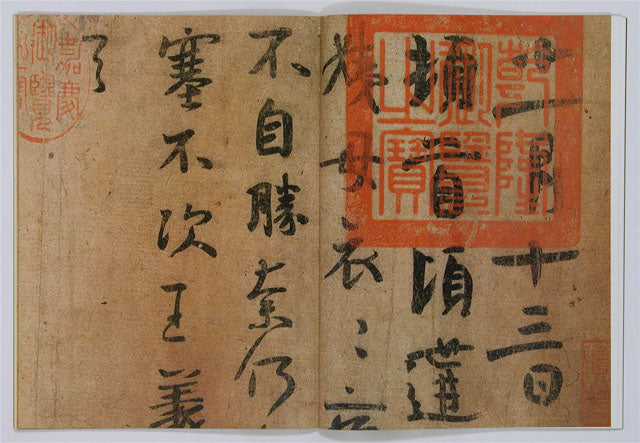 十一月十三日
頓首頃遘
姨母哀〻痛
不自勝奈何
塞不次王羲
乾隆御覽之寶
嘉慶御覽之寶